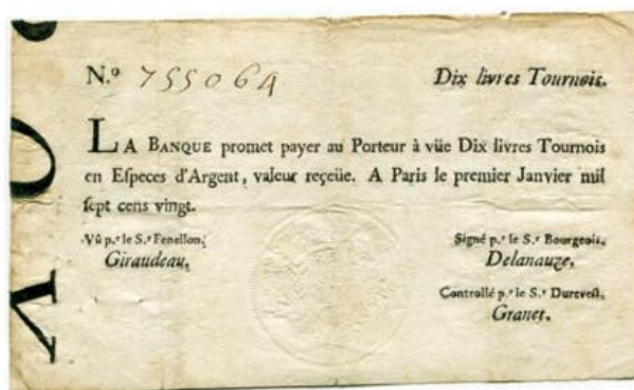 N.º 755064 Dix livres Tournois.
LA BANQUE promet payer au Porteur à vüe Dix livres Tournois
en Eſpeces d'Argent, valeur reçeüe. A Paris le premier Janvier mil
ſept cens vingt.
Vû p.r le S.r Fenellon,
Giraudeau,
Signé p.r le S.r Bourgeois,
Delanauze,
Controllé p.r le S.r Dureveſt,
Granet.